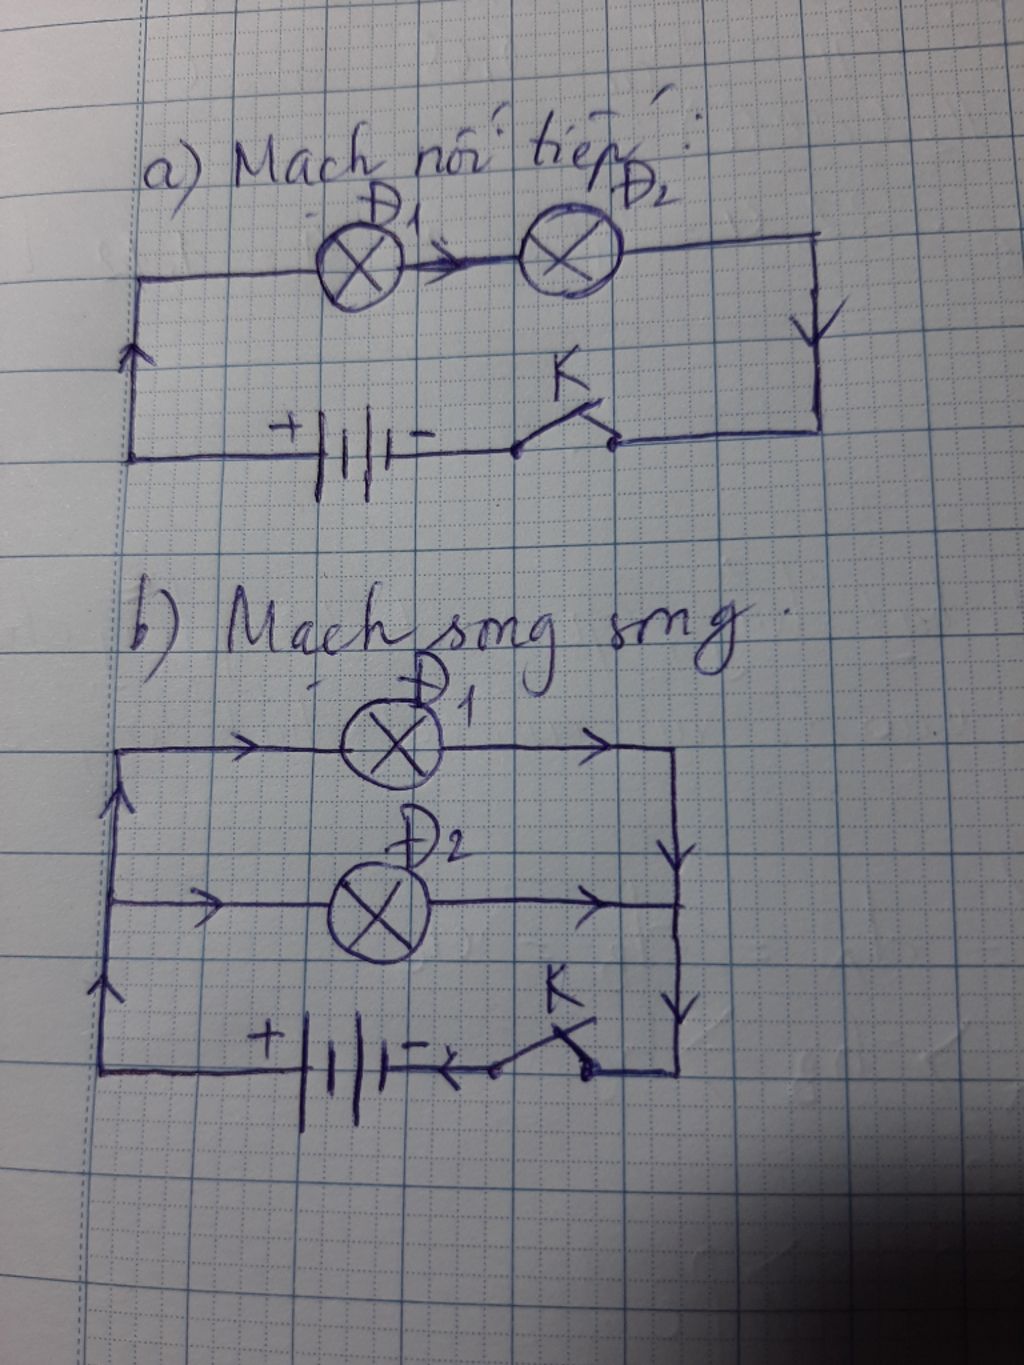 a) Mạch nối tiếp:
Đ1 Đ2
K
+ -
b) Mạch song song.
Đ1
Đ2
K
+ -